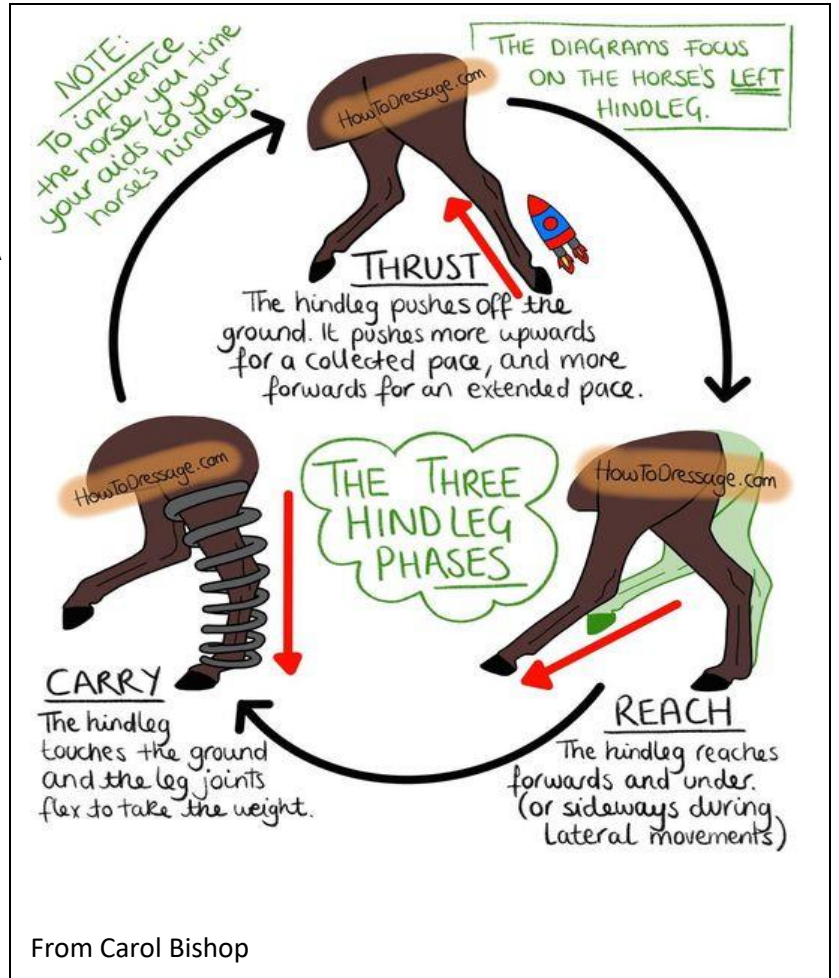 NOTE:
To influence
the horse, you time
your aids to your
horse's hindlegs.
THE DIAGRAMS FOCUS
ON THE HORSE'S LEFT
HINDLEG.
HowToDressage.com
THRUST
The hindleg pushes off the
ground. It pushes more upwards
for a collected pace, and more
forwards for an extended pace.
HowToDressage.com
THE THREE
HINDLEG
PHASES
HowToDressage.com
CARRY
The hindleg
touches the ground
and the leg joints
flex to take the weight.
REACH
The hindleg reaches
forwards and under.
(or sideways during
lateral movements)
From Carol Bishop